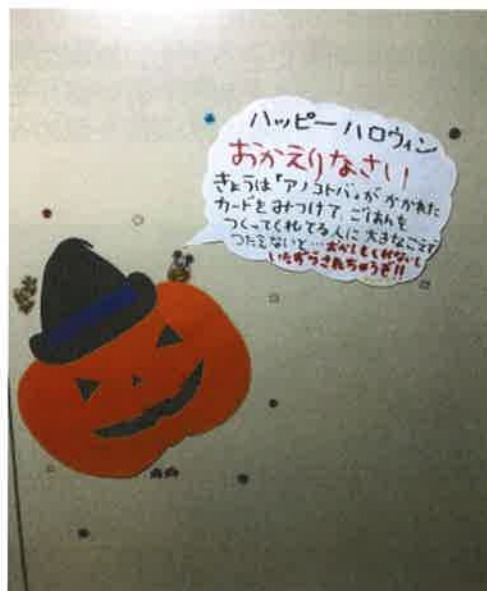 ハッピー ハロウィン
おかえりなさい
きょうは「アノコトバ」が かかれた
カードをみつけて、ごはんを
つくってくれてる人に 大きなこえで
つたえないと…おかしもくれないし
いたずらされちゃうぞ!!